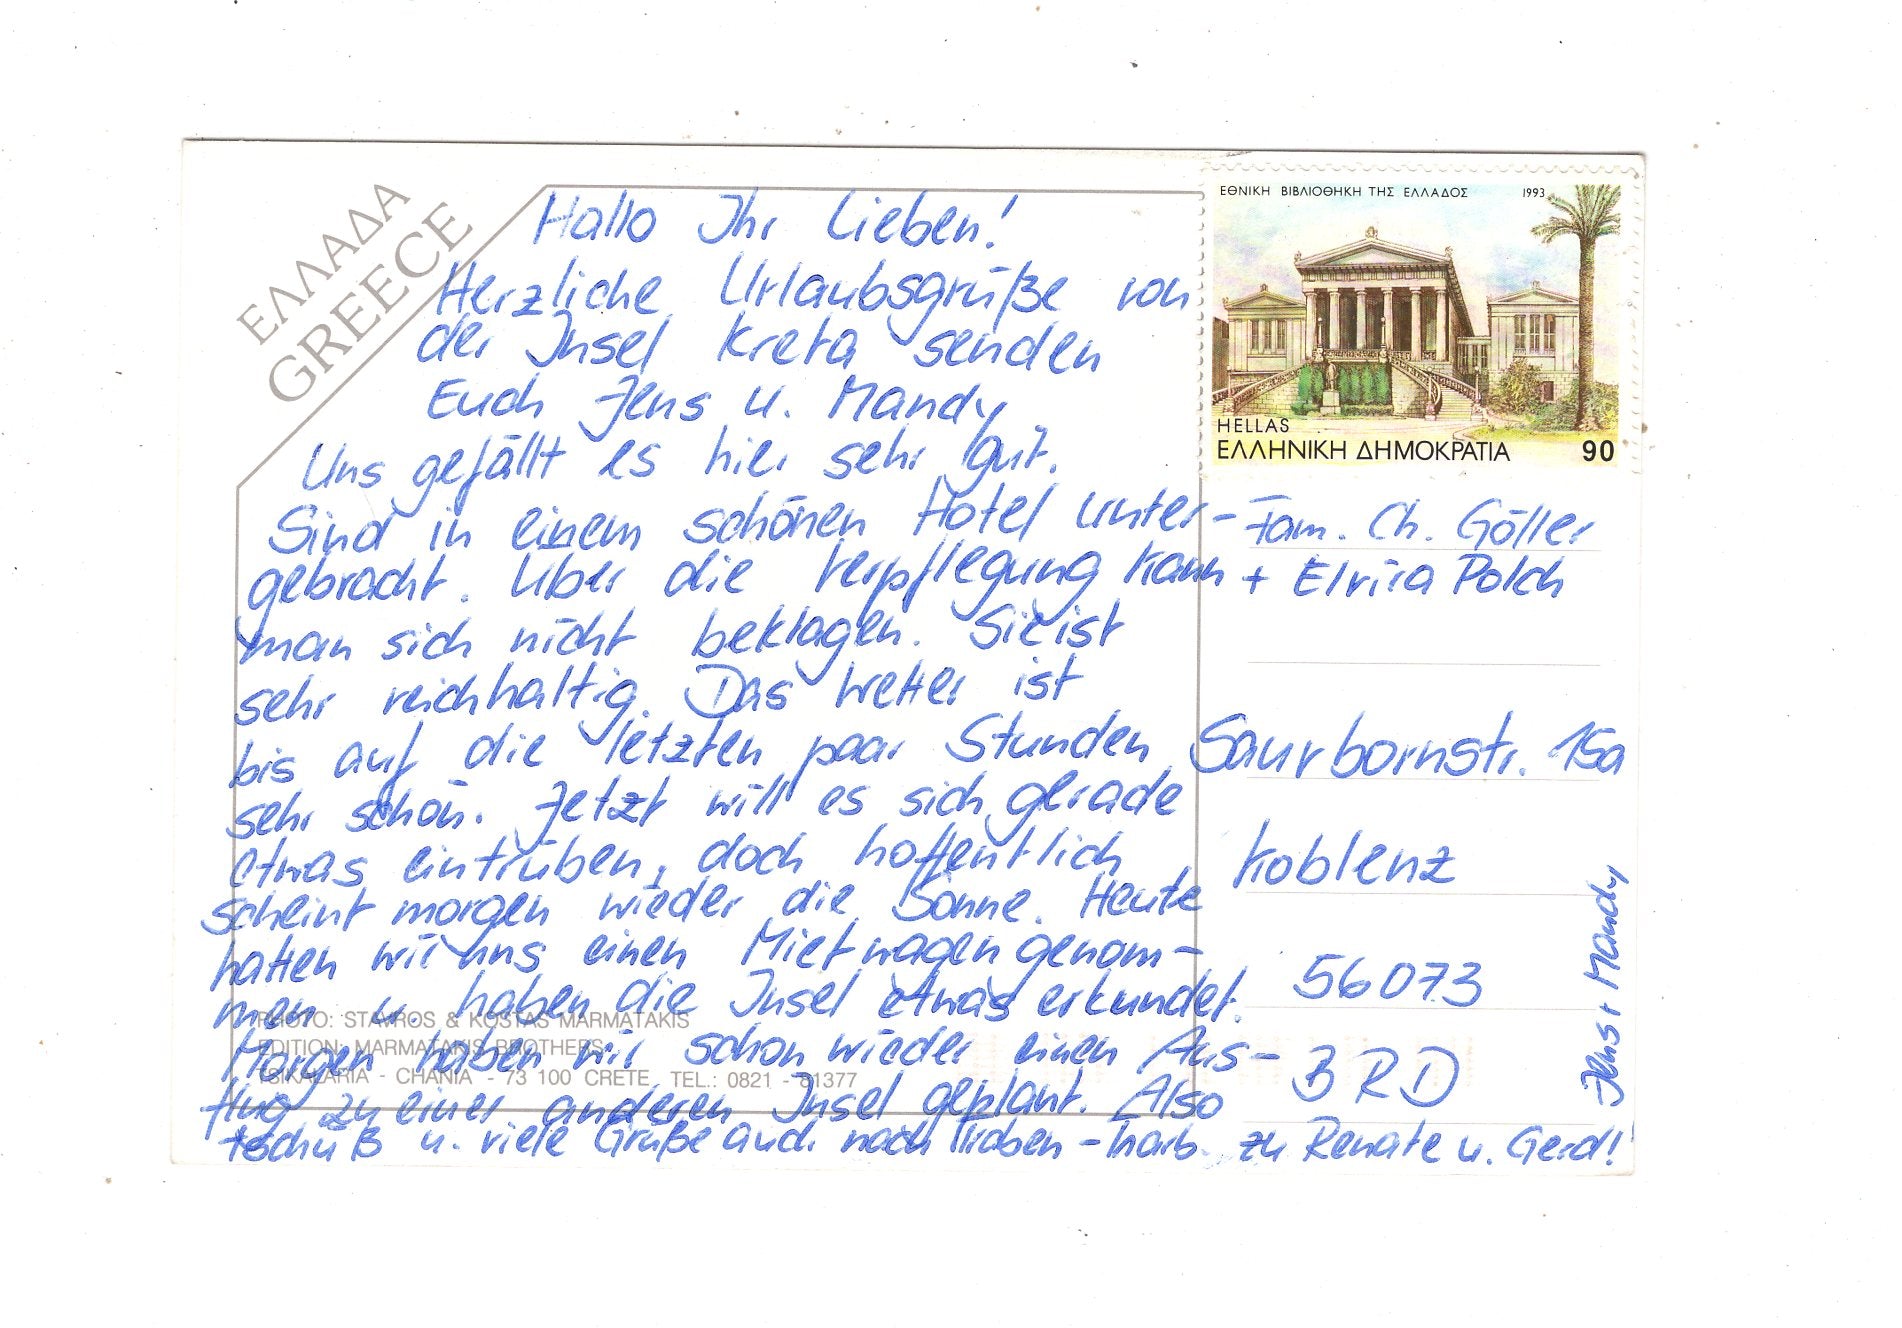 ΕΛΛΑΔΑ
GREECE
Hallo Ihr Lieben!
Herzliche Urlaubsgrüße von
der Insel Kreta senden
Euch Jens u. Mandy
Uns gefällt es hier sehr gut.
Sind in einem schönen Hotel unter-
gebracht. Über die Verpflegung kann
man sich nicht beklagen. Sie ist
sehr reichhaltig. Das Wetter ist
bis auf die letzten paar Stunden
sehr schön. Jetzt will es sich gerade
etwas eintrüben, doch hoffentlich
scheint morgen wieder die Sonne. Heute
hatten wir uns einen Mietwagen genom-
men u. haben die Insel etwas erkundet.
Morgen haben wir schon wieder einen Aus-
flug zu einer anderen Insel geplant. Also
tschüß u. viele Grüße auch nach lieben - zu Renate u. Gerd!
PHOTO: STAVROS & KOSTAS MARMATAKIS
EDITION: MARMATAKIS BROTHERS
TSIKALARIA - CHANIA - 73 100 CRETE, TEL.: 0821 - 81377
ΕΘΝΙΚΗ ΒΙΒΛΙΟΘΗΚΗ ΤΗΣ ΕΛΛΑΔΟΣ 1993
HELLAS
ΕΛΛΗΝΙΚΗ ΔΗΜΟΚΡΑΤΙΑ 90
Fam. Ch. Göller
+ Elvira Polch
Saurbornstr. 15a
Koblenz
56073
BRD
Jens + Mandy